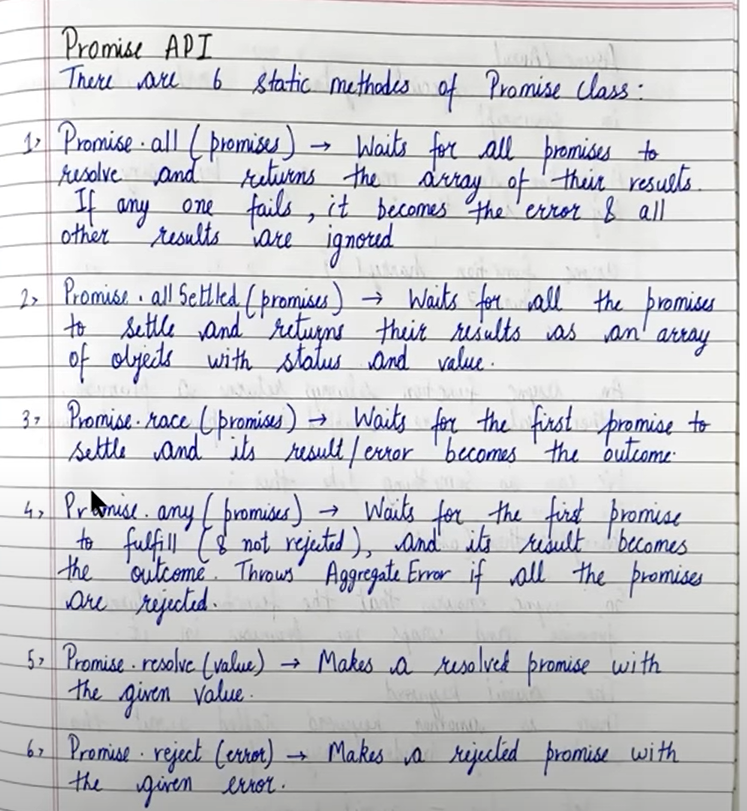 Promise API
There are 6 static methodes of Promise class:
1> Promise.all (promises) → Waits for all promises to
resolve and returns the array of their results.
If any one fails, it becomes the error & all
other results are ignored
2> Promise.allSettled (promises) → Waits for all the promises
to settle and returns their results as an array
of objects with status and value.
3> Promise.race (promises) → Waits for the first promise to
settle and its result/error becomes the outcome.
4> Promise.any (promises) → Waits for the first promise
to fulfill (& not rejected), and its result becomes
the outcome. Throws Aggregate Error if all the promises
are rejected.
5> Promise.resolve (value) → Makes a resolved promise with
the given value.
6> Promise.reject (error) → Makes a rejected promise with
the given error.